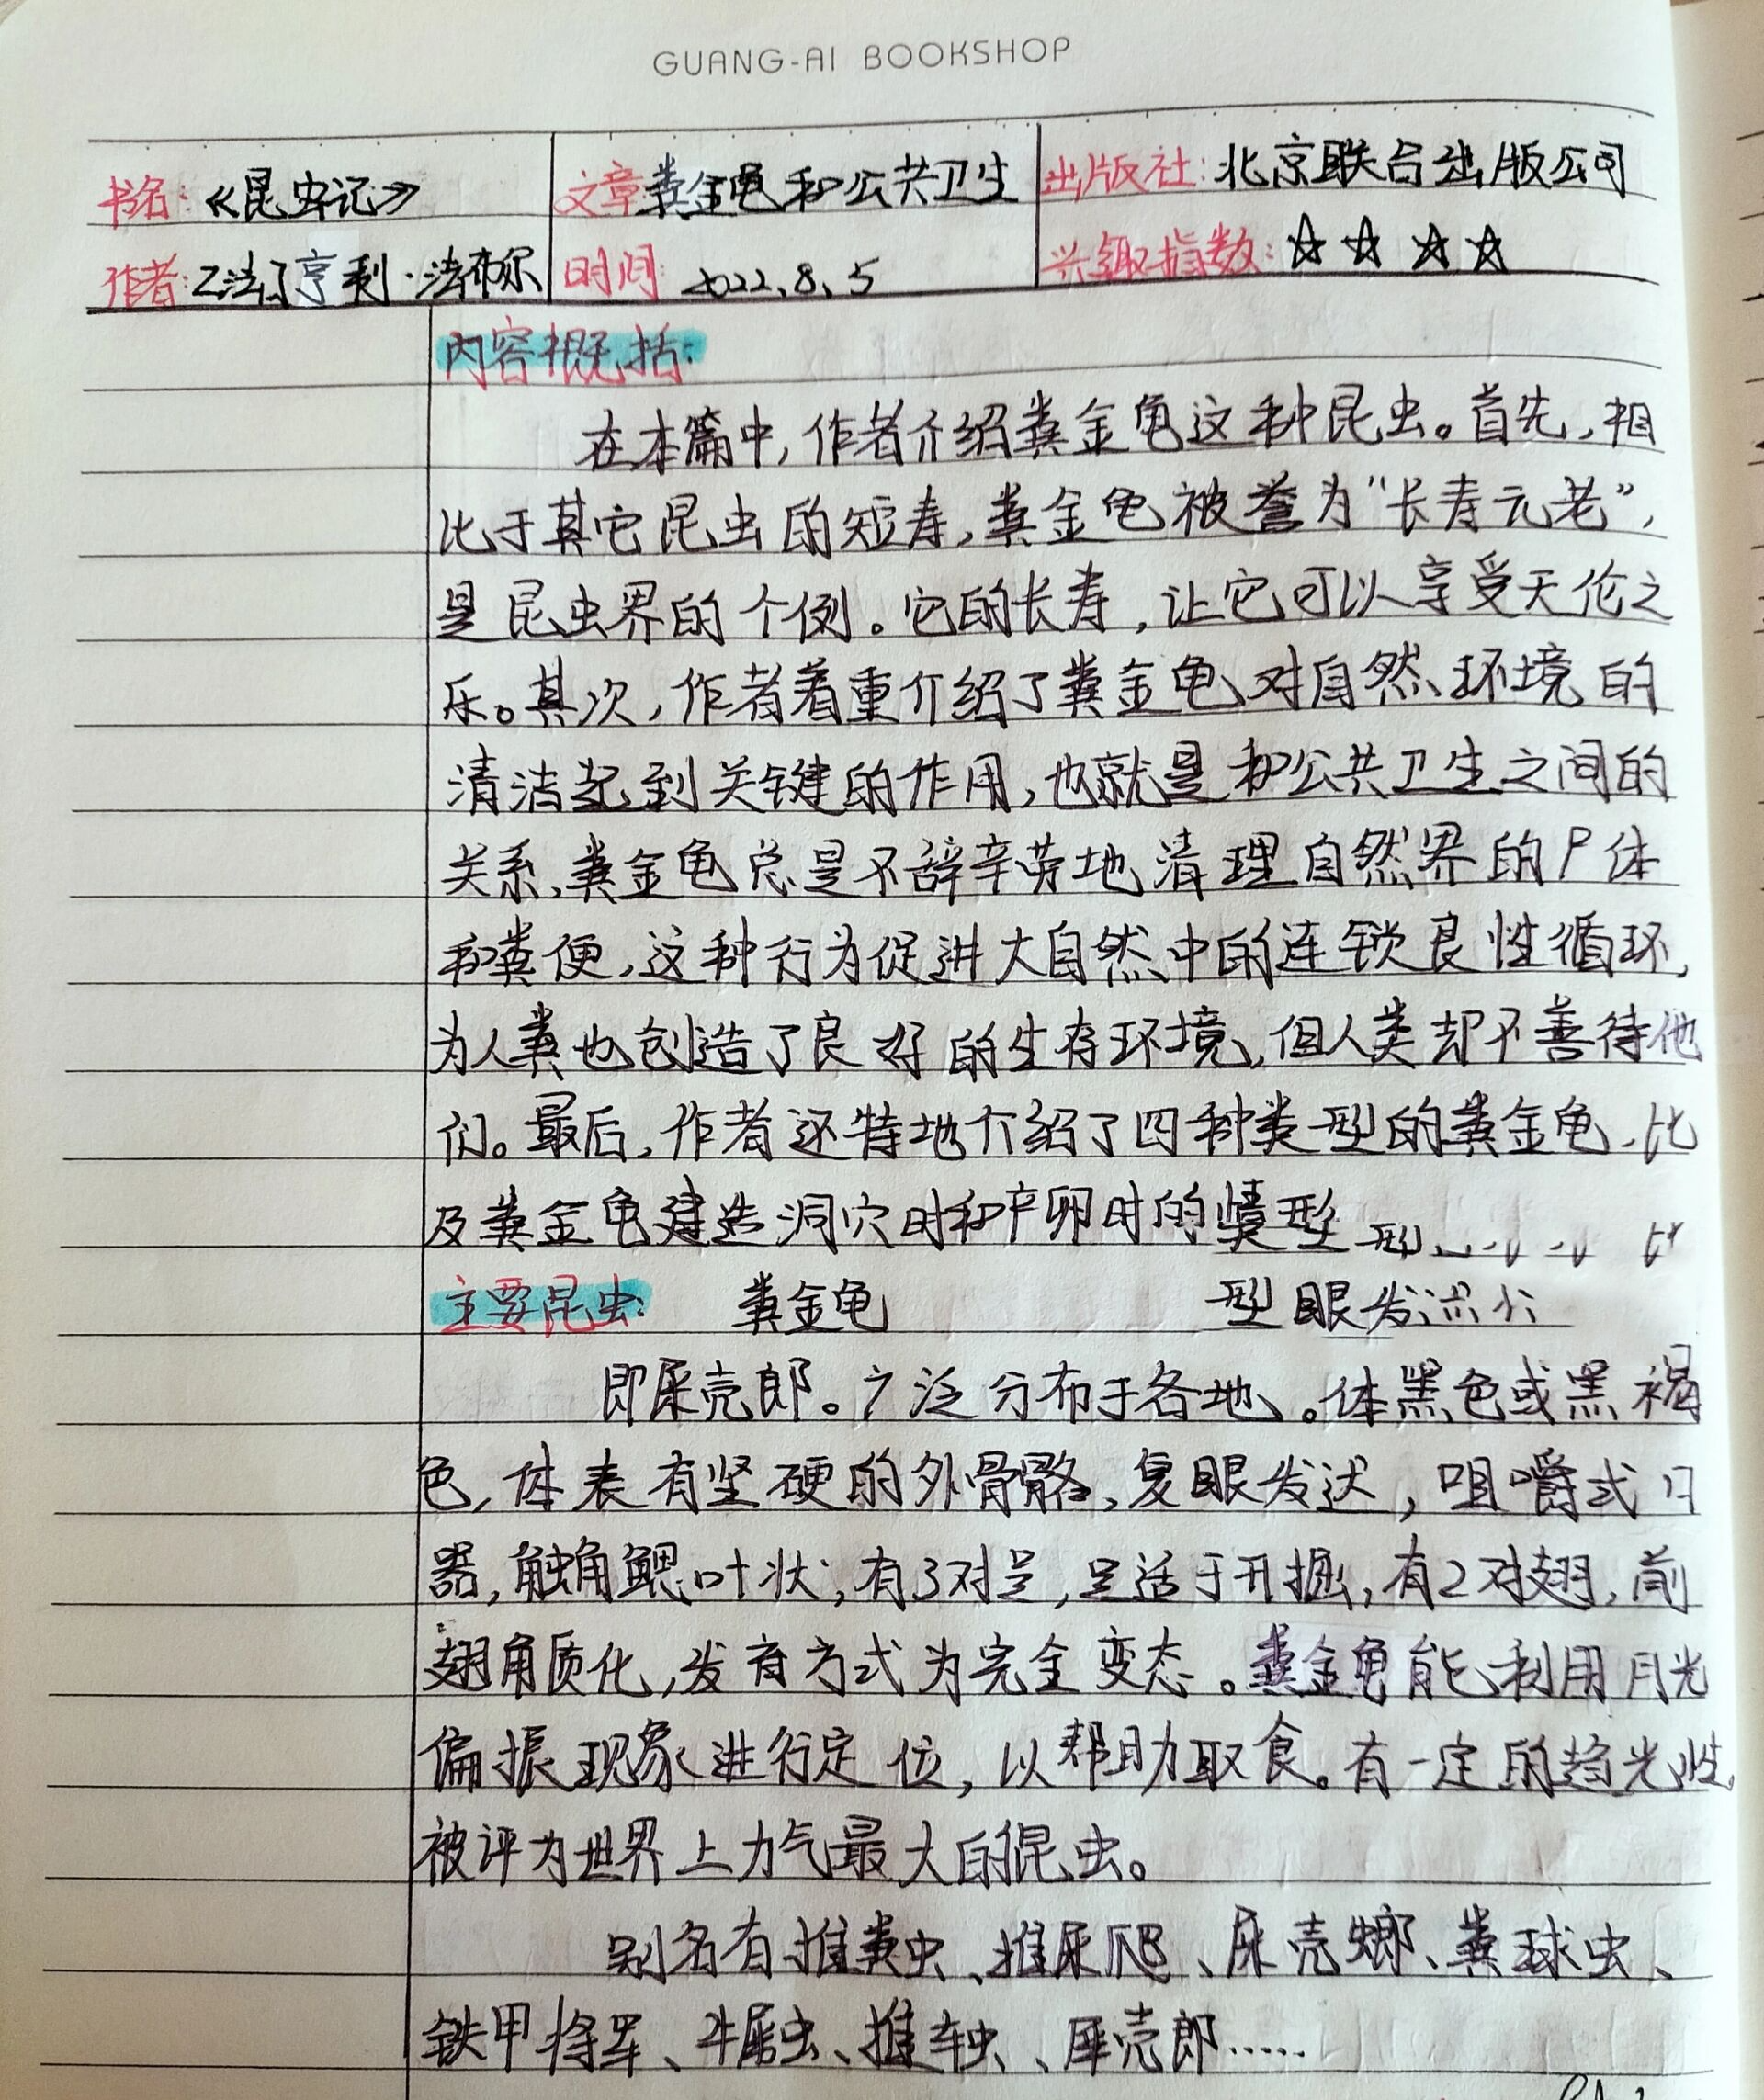 GUANG-AI BOOKSHOP
书名:《昆虫记》 文章粪金龟和公共卫生 出版社:北京联合出版公司
作者:乙法丁亨利·法布尔 时间:2022.8.5 兴趣指数:☆☆☆☆
内容概括:
在本篇中,作者介绍粪金龟这种昆虫。首先,相
比于其它昆虫的短寿,粪金龟被誉为“长寿元老”,
是昆虫界的个例。它的长寿,让它可以享受天伦之
乐。其次,作者着重介绍了粪金龟对自然环境的
清洁起到关键的作用,也就是和公共卫生之间的
关系,粪金龟总是不辞辛劳地清理自然界的尸体
和粪便,这种行为促进大自然中的连锁良性循环,
为人粪也创造了良好的生存环境,但人类却不善待他
们。最后,作者还特地介绍了四种类型的粪金龟,比
及粪金龟建造洞穴时和产卵时的情形
主要昆虫: 粪金龟
型眼发
即屎壳郎。广泛分布于各地。体黑色或黑褐
色,体表有坚硬的外骨骼,复眼发达,咀嚼式口
器,触角鳃叶状;有3对足,足适于开掘,有2对翅,前
翅角质化,发育方式为完全变态。粪金龟能利用月光
偏振现象进行定位,以帮助取食。有一定的趋光性,
被评为世界上力气最大的昆虫。
别名有推粪虫、推屎爬、屎壳螂、粪球虫、
铁甲将军、牛屎虫、推车虫、屎壳郎……